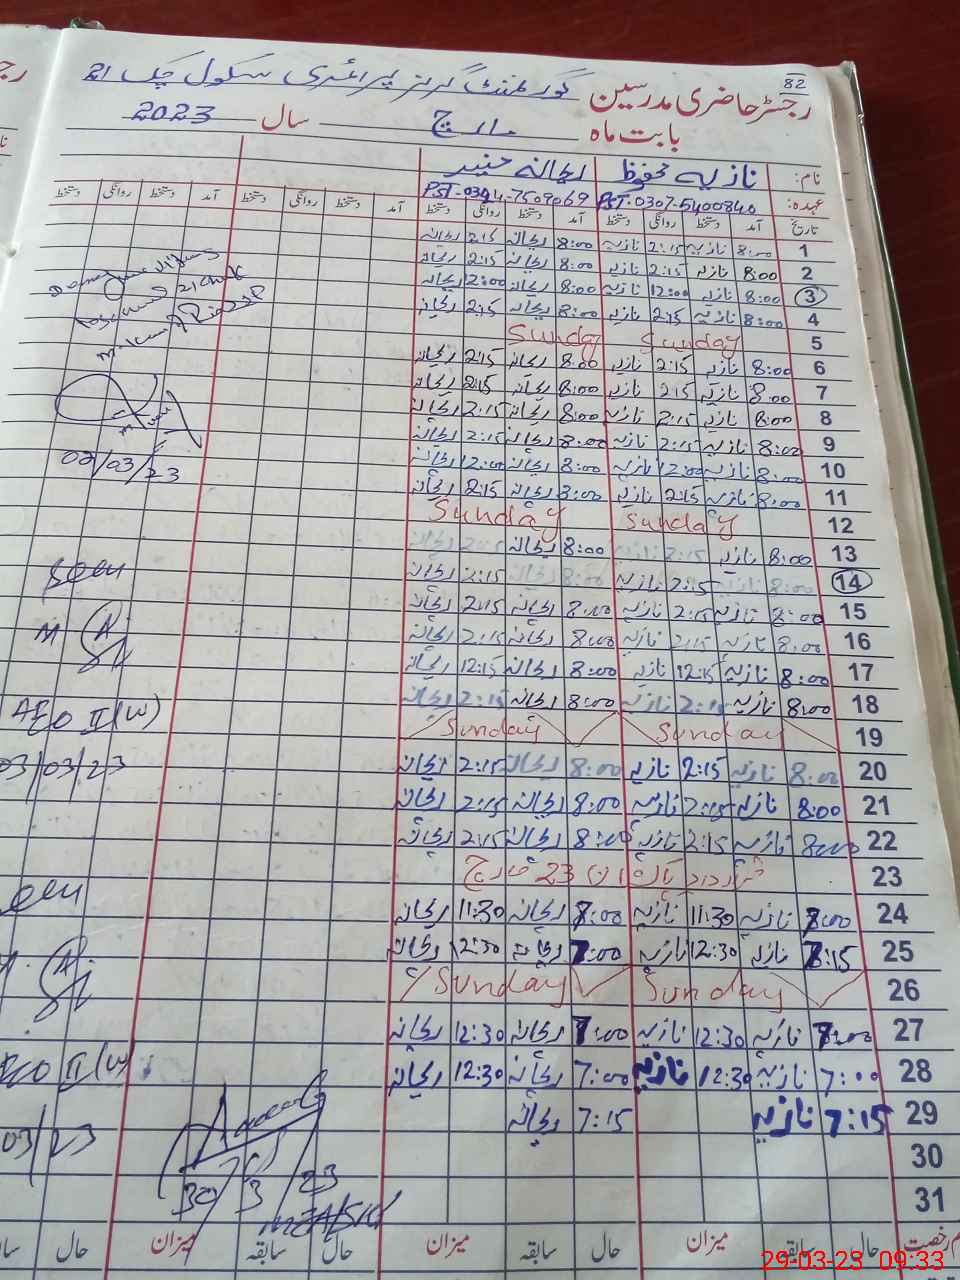 82
رجسٹر حاضری مدرسین گورنمنٹ گرلز پرائمری سکول چک 21
بابت ماہ مارچ سال 2023
نام: نازیہ محفوظ ریحانہ
عہدہ: PST-0307-5400840 PST-0344-7509069
تاریخ آمد دستخط روانگی دستخط آمد دستخط روانگی دستخط آمد دستخط روانگی دستخط آمد دستخط روانگی دستخط
1 8:00 نازیہ 2:15 نازیہ 8:00 ریحانہ 2:15 ریحانہ
2 8:00 نازیہ 2:15 نازیہ 8:00 ریحانہ 2:15 ریحانہ
3 8:00 نازیہ 12:00 نازیہ 8:00 ریحانہ 12:00 ریحانہ
4 8:00 نازیہ 2:15 نازیہ 8:00 ریحانہ 2:15 ریحانہ
5 Sunday Sunday
6 8:00 نازیہ 2:15 نازیہ 8:00 ریحانہ 2:15 ریحانہ
7 8:00 نازیہ 2:15 نازیہ 8:00 ریحانہ 2:15 ریحانہ
8 8:00 نازیہ 2:15 نازیہ 8:00 ریحانہ 2:15 ریحانہ
9 8:00 نازیہ 2:15 نازیہ 8:00 ریحانہ 2:15 ریحانہ
10 8:00 نازیہ 12:00 نازیہ 8:00 ریحانہ 12:00 ریحانہ
11 8:00 نازیہ 2:15 نازیہ 8:00 ریحانہ 2:15 ریحانہ
12 Sunday Sunday
13 8:00 نازیہ 2:15 نازیہ 8:00 ریحانہ 2:15 ریحانہ
14 8:00 نازیہ 2:15 نازیہ 8:00 ریحانہ 2:15 ریحانہ
15 8:00 نازیہ 2:15 نازیہ 8:00 ریحانہ 2:15 ریحانہ
16 8:00 نازیہ 2:15 نازیہ 8:00 ریحانہ 2:15 ریحانہ
17 8:00 نازیہ 12:15 نازیہ 8:00 ریحانہ 12:15 ریحانہ
18 8:00 نازیہ 2:15 نازیہ 8:00 ریحانہ 2:15 ریحانہ
19 Sunday Sunday
20 8:00 نازیہ 2:15 نازیہ 8:00 ریحانہ 2:15 ریحانہ
21 8:00 نازیہ 2:15 نازیہ 8:00 ریحانہ 2:15 ریحانہ
22 8:00 نازیہ 2:15 نازیہ 8:00 ریحانہ 2:15 ریحانہ
23 قرارداد پاکستان 23 مارچ
24 8:00 نازیہ 11:30 نازیہ 8:00 ریحانہ 11:30 ریحانہ
25 8:15 نازیہ 12:30 نازیہ 7:00 ریحانہ 12:30 ریحانہ
26 Sunday Sunday
27 7:00 نازیہ 12:30 نازیہ 7:00 ریحانہ 12:30 ریحانہ
28 7:00 نازیہ 12:30 نازیہ 7:00 ریحانہ 12:30 ریحانہ
29 7:15 نازیہ 7:15 ریحانہ
30
31
رخصت حال سابقہ میزان حال سابقہ میزان حال سابقہ میزان حال
02/03/23
Seen
AEO II (W)
03/03/23
Seen
AEO II (W)
03/23
30/3/23
29-03-23 09:33